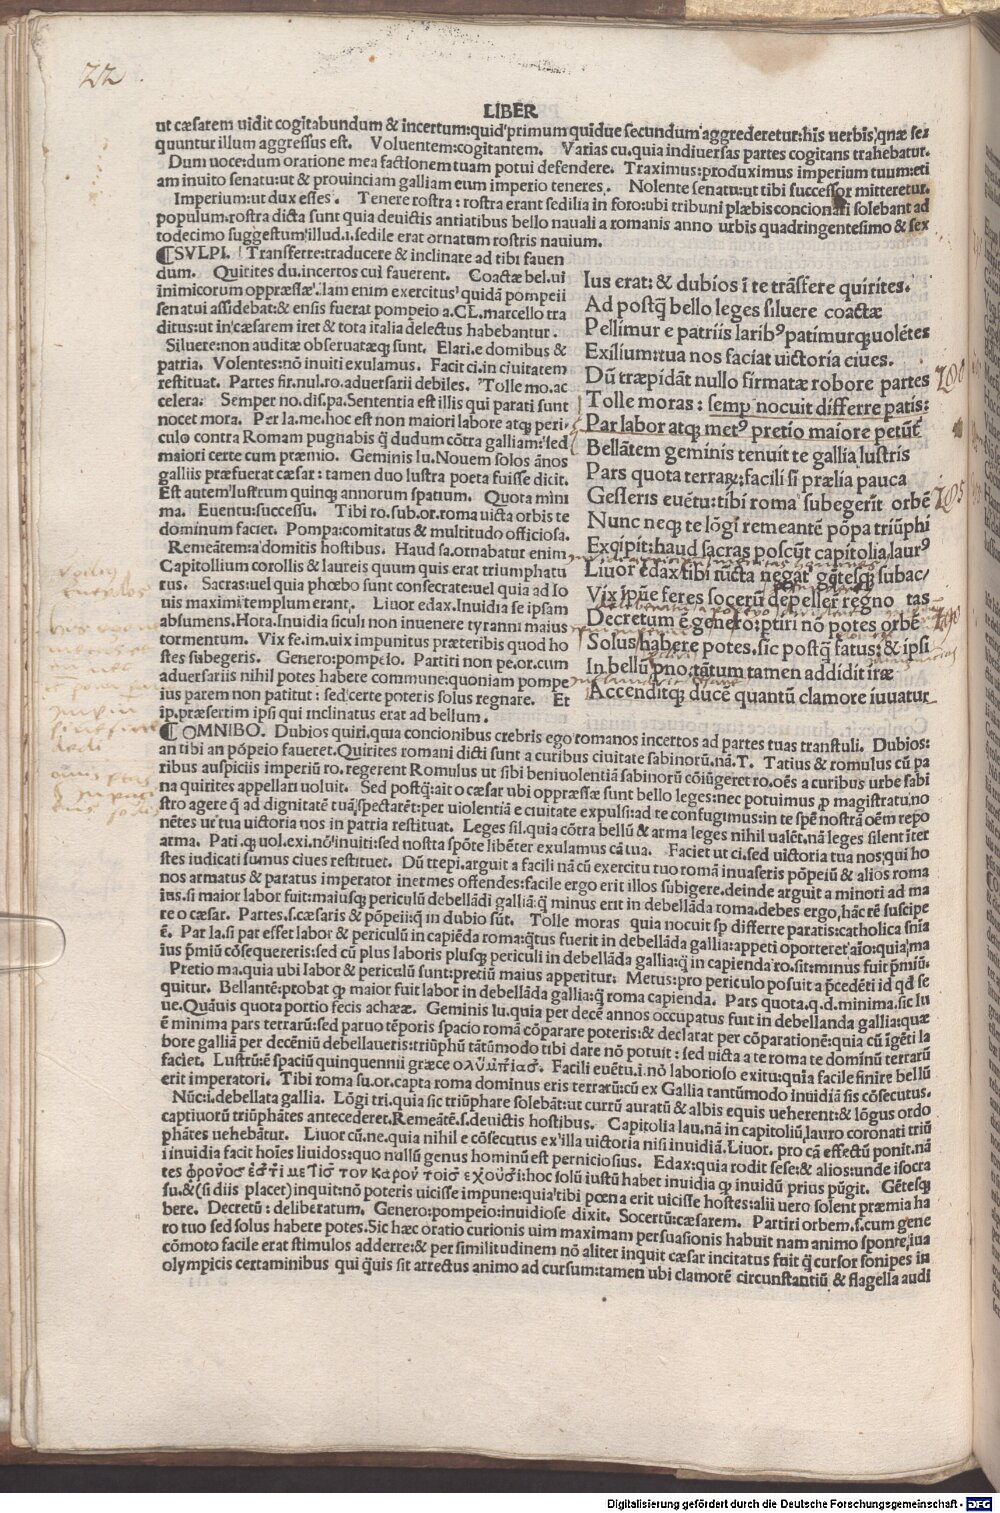 22
LIBER
ut cæsarem uidit cogitabundum & incertum:quid primum quidue secundum aggrederetur:his uerbis,quæ se⁊
quuntur illum aggressus est. Voluentem:cogitantem. Varias cu.quia indiuersas partes cogitans trahebatur.
Dum uoce:dum oratione mea factionem tuam potui defendere. Traximus:produximus imperium tuum:eti
am inuito senatu:ut & prouinciam galliam eum imperio teneres. Nolente senatu:ut tibi successor mitteretur.
Imperium:ut dux esses. Tenere rostra: rostra erant sedilia in foro:ubi tribuni plæbis concionari solebant ad
populum.rostra dicta sunt quia deuictis antiatibus bello nauali a romanis anno urbis quadringentesimo & sex
todecimo suggestum illud.i.sedile erat ornatum rostris nauium.
¶SVLPI. Transferre:traducere & inclinate ad tibi fauen
dum. Quirites du.incertos cui fauerent. Coactæ bel.ui
inimicorum oppræssæ. Iam enim exercitus quidã pompeii
senatui assidebat:& ensis fuerat pompeio a.CL.marcello tra
ditus:ut in cæsarem iret & tota italia delectus habebantur.
Siluere:non auditæ obseruatæq; sunt. Elari.e domibus &
patria. Volentes:nõ inuiti exulamus. Facit ci.in ciuitatem
restituat. Partes fir.nul.ro.aduersarii debiles. Tolle mo.ac
celera: Semper no.dif.pa.Sententia est illis qui parati sunt
nocet mora. Per la.me.hoc est non maiori labore atq; peri⁊
culo contra Romam pugnabis q̃ dudum cõtra galliam:sed
maiori certe cum præmio. Geminis lu.Nouem solos ãnos
galliis præfuerat cæsar: tamen duo lustra poeta fuisse dicit.
Est autem lustrum quinq; annorum spatium. Quota mini
ma. Euentu:successu. Tibi ro.sub.or.roma uicta orbis te
dominum faciet. Pompa:comitatus & multitudo officiosa.
Remeãtem:a domitis hostibus. Haud sa.ornabatur enim
Capitollium corollis & laureis quum quis erat triumphatu
rus. Sacras:uel quia phœbo sunt consecrate:uel quia ad Io
uis maximi templum erant. Liuor edax.Inuidia se ipsam
absumens.Hora.Inuidia siculi non inuenere tyranni maius
tormentum. Vix fe.im.uix impunitus præteribis quod ho
stes subegeris. Genero:pompeio. Partiri non pe.or.cum
aduersariis nihil potes habere commune:quoniam pompe
ius parem non patitur: sed certe poteris solus regnare. Et
ip.præsertim ipsi qui inclinatus erat ad bellum.
Ius erat: & dubios ĩ te trãsfere quirites.
Ad postq̃ bello leges siluere coactæ
Pellimur e patriis larib⁹ patimurq;uolẽtes
Exilium:tua nos faciat uictoria ciues.
Dũ træpidãt nullo firmatæ robore partes
Tolle moras: semp̱ nocuit differre patis:
Par labor atq; met⁹ pretio maiore petũt̃
Bellãtem geminis tenuit te gallia lustris
Pars quota terraꝝ;facili si prælia pauca
Gesseris euẽtu:tibi roma subegerit orbẽ
Nunc neq; te lõgi remeantẽ põpa triũphi
Exqipit:haud sacras poscũt capitolia laur⁹
Liuor edax tibi cũcta negat gẽtesq; subac/
Vix ipũe feres socerũ depeller̃ regno tas
Decretum ẽ genero:ptiri nõ potes orbẽ
Solus habere potes.sic postq̃ fatus: & ipsi
In bellũ p̱no:tãtum tamen addidit iræ
Accenditq; ducẽ quantũ clamore iuuatur
¶OMNIBO. Dubios quiri.quia concionibus crebris ego romanos incertos ad partes tuas transtuli. Dubios:
an tibi an põpeio faueret.Quirites romani dicti sunt a curibus ciuitate sabinorũ.nã.T. Tatius & romulus cũ pa
ribus auspiciis imperiũ ro.regerent Romulus ut sibi beniuolentiã sabinorũ cõiũgeret ro.oẽs a curibus urbe sabi
na quirites appellari uoluit. Sed postq̃:ait o cæsar ubi oppræssæ sunt bello leges:nec potuimus p̱ magistratũ,no
stro agere q̃ ad dignitatẽ tuã spectarẽt:per uiolentiã e ciuitate expulsi:ad te confugimus:in te spẽ nostrã oẽm repo
nẽtes ut tua uictoria nos in patria restituat. Leges sil.quia cõtra bellũ & arma leges nihil ualẽt.nã leges silent ĩter
arma. Pati.q; uol.exi.nõ inuiti:sed nostra spõte libẽter exulamus cã tua. Faciet ut ci.sed uictoria tua nos:qui ho
stes iudicati sumus ciues restituet. Dũ trepi.arguit a facili nã cũ exercitu tuo romã inuaseris põpeiũ & alios roma
nos armatus & paratus imperator inermes offendes:facile ergo erit illos subigere.deinde arguit a minori ad ma
ius.si maior labor fuit:maiusq; periculũ debellãdi galliã:q̃ minus erit in debellãda roma.debes ergo,hãc rẽ suscipe
re o cæsar. Partes.s.cæsaris & põpeii:q̃ in dubio sũt. Tolle moras quia nocuit sp̱ differre paratis:catholica sñia
ẽ. Par la.si par esset labor & periculũ in capiẽda roma:q̃tus fuerit in debellãda gallia:appeti oporteret.aĩo:quia ma
ius p̃miũ cõsequereris:sed cũ plus laboris plusq; periculi in debellãda gallia:q̃ in capienda ro.sit:minus fuit p̃miũ.
Pretio ma.quia ubi labor & periculũ sunt:pretiũ maius appetitur. Metus:pro periculo posuit a p̃cedẽti id qd̃ se
quitur. Bellantẽ:probat q; maior fuit labor in debellãda gallia:q̃ roma capienda. Pars quota.q.d.minima.sic Iu
ue.Quãuis quota portio fecis achææ. Geminis lu.quia per decẽ annos occupatus fuit in debellanda gallia:quæ
ẽ minima pars terrarũ:sed paruo tẽporis spacio romã cõparare poteris:& declarat per cõparationẽ:quia cũ ĩgẽti la
bore galliã per decẽniũ debellaueris:triũphũ tãtũmodo tibi dare nõ potuit: sed uicta a te roma te dominũ terrarũ
faciet. Lustrũ:ẽ spaciũ quinquennii græce ολυμπιασ. Facili euẽtu.i.nõ laborioso exitu:quia facile finire bellũ
erit imperatori. Tibi roma su.or.capta roma dominus eris terrarũ:cũ ex Gallia tantũmodo inuidiã sis cõsecutus.
Nũc:i.debellata gallia. Lõgi tri.quia sic triũphare solebãt:ut currũ auratũ & albis equis ueherent:& lõgus ordo
captiuorũ triũphãtes antecederet.Remeãtẽ.s.deuictis hostibus. Capitolia lau.nã in capitoliũ,lauro coronati triũ
phãtes uehebãtur. Liuor cũ.ne.quia nihil e cõsecutus ex illa uictoria nisi inuidiã.Liuor. pro cã effectũ ponit.nã
i inuidia facit hoĩes liuidos:quo nullũ genus hominũ est perniciosius. Edax:quia rodit sese:& alios:unde isocra
tes φρονοσ εστι μετισ τον καρον τοισ εχουσι:hoc solũ iustũ habet inuidia q; inuidũ prius pũgit. Gẽtesq;
su.&(si diis placet)inquit:nõ poteris uicisse impune:quia tibi pœna erit uicisse hostes:alii uero solent præmia ha
bere. Decretũ: deliberatum. Genero:pompeio:inuidiose dixit. Socertũ:cæsarem. Partiri orbem.s.cum gene
ro tuo sed solus habere potes.Sic hæc oratio curionis uim maximam persuasionis habuit nam animo sponte,iua
cõmoto facile erat stimulos adderre:& per similitudinem nõ aliter inquit cæsar incitatus fuit q̃ cursor sonipes in
olympicis certaminibus qui q̃uis sit arrectus animo ad cursum:tamen ubi clamorẽ circunstantiũ & flagella audi
Digitalisierung gefördert durch die Deutsche Forschungsgemeinschaft - DFG